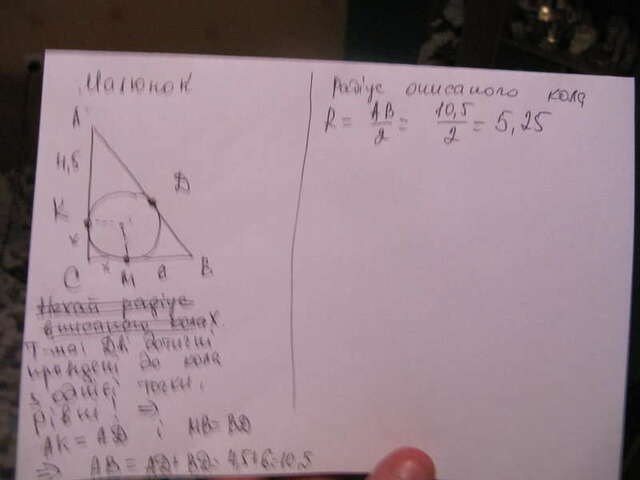 Малюнок
A
4,5
D
K
x
C
x
M
6
B
Нехай радіус
вписаного кола x.
дотичні
проведені до кола
з однієї точки,
рівні ⇒
AK = AD і MB = BD
⇒ AB = AD + BD = 4,5+6=10,5
Радіус описаного кола
R = AB/2 = 10,5/2 = 5,25